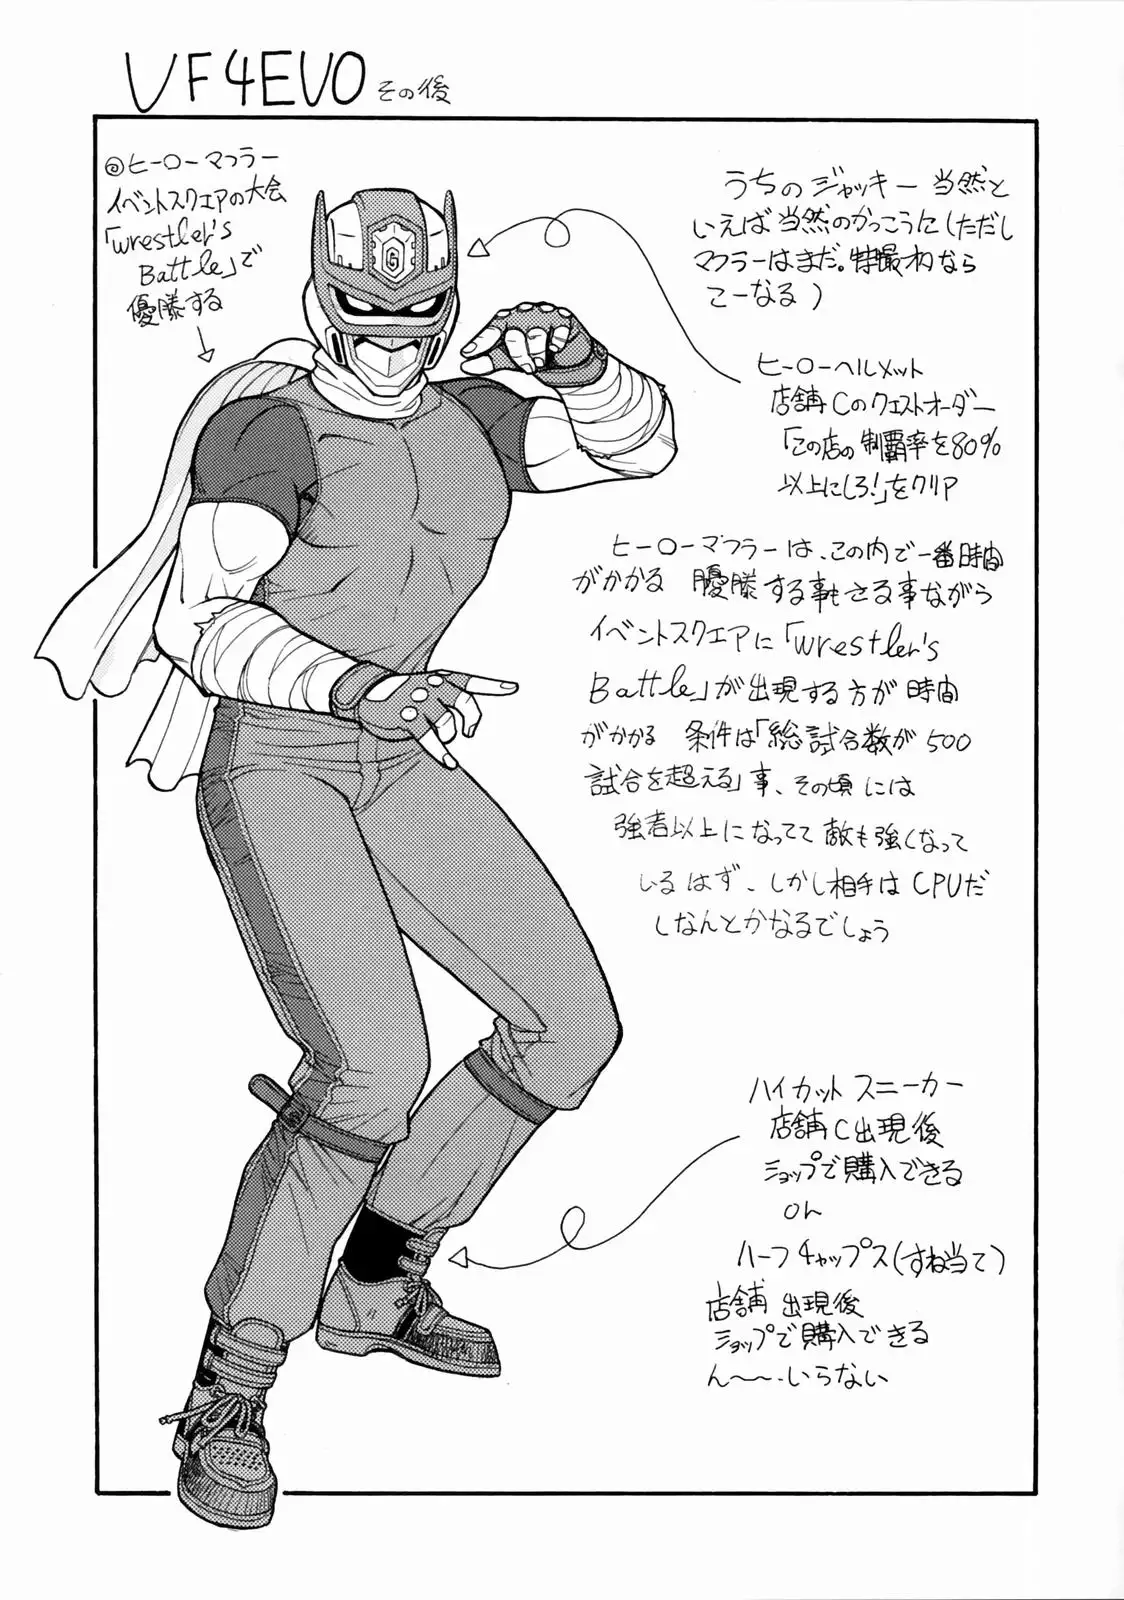 VF4EVO その後
◎ヒーローマフラー
イベントスクエアの大会
「wrestler's
Battle」で
優勝する
うちのジャッキー 当然と
いえば当然のかっこうに(ただし
マフラーはまだ。特撮オタなら
こーなる)
ヒーローヘルメット
店舗Cのクエストオーダー
「この店の制覇率を80%
以上にしろ!」をクリア
ヒーローマフラーは、この内で一番時間
がかかる 優勝する事もさる事ながら
イベントスクエアに「wrestler's
Battle」が出現する方が時間
がかかる 条件は「総試合数が500
試合を超える」事、その頃には
強者以上になってて敵も強くなって
いるはず、しかし相手はCPUだ
しなんとかなるでしょう
ハイカットスニーカー
店舗C出現後
ショップで購入できる
or
ハーフチャップス(すね当て)
店舗 出現後
ショップで購入できる
ん〜〜、いらない